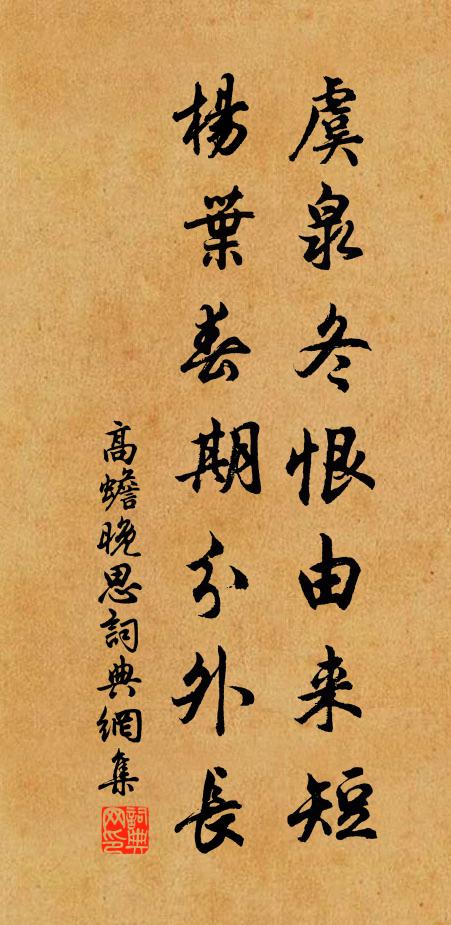 虞泉冬恨由来短
楊葉春期分外長
高蟾晚思詞典網集
詞典网印